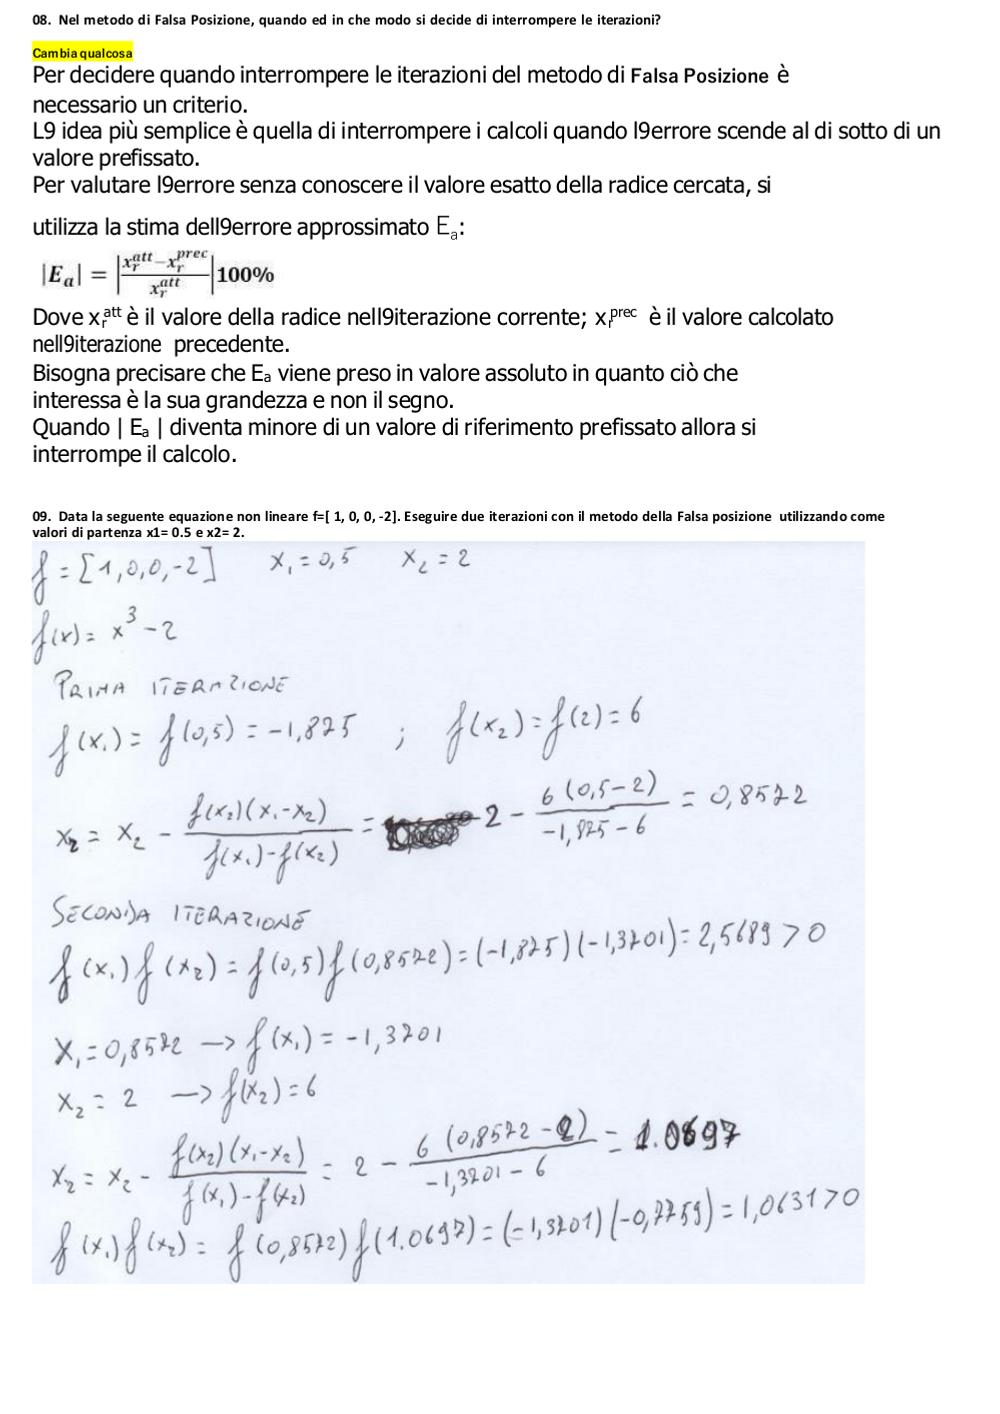 08. Nel metodo di Falsa Posizione, quando ed in che modo si decide di interrompere le iterazioni?
Cambia qualcosa
Per decidere quando interrompere le iterazioni del metodo di Falsa Posizione è
necessario un criterio.
L9 idea più semplice è quella di interrompere i calcoli quando l9errore scende al di sotto di un
valore prefissato.
Per valutare l9errore senza conoscere il valore esatto della radice cercata, si
utilizza la stima dell9errore approssimato Eₐ:
|Eₐ| = |(x_r^att − x_r^prec) / x_r^att| 100%
Dove x_r^att è il valore della radice nell9iterazione corrente; x_r^prec è il valore calcolato
nell9iterazione precedente.
Bisogna precisare che Eₐ viene preso in valore assoluto in quanto ciò che
interessa è la sua grandezza e non il segno.
Quando | Eₐ | diventa minore di un valore di riferimento prefissato allora si
interrompe il calcolo.
09. Data la seguente equazione non lineare f=[ 1, 0, 0, -2]. Eseguire due iterazioni con il metodo della Falsa posizione utilizzando come
valori di partenza x1= 0.5 e x2= 2.
f = [1,0,0,-2] x₁ = 0,5 x₂ = 2
f(x) = x³ - 2
PRIMA ITERAZIONE
f(x₁) = f(0,5) = -1,875 ; f(x₂) = f(2) = 6
x_r = x₂ - f(x₂)(x₁-x₂) / f(x₁)-f(x₂) = 2 - 6(0,5-2) / -1,875-6 = 0,8572
SECONDA ITERAZIONE
f(x₁) f(x_r) = f(0,5) f(0,8572) = (-1,875)(-1,3701) = 2,5689 > 0
x₁ = 0,8572 → f(x₁) = -1,3701
x₂ = 2 → f(x₂) = 6
x_r = x₂ - f(x₂)(x₁-x₂) / f(x₁)-f(x₂) = 2 - 6(0,8572-2) / -1,3701-6 = 1.0697
f(x₁) f(x_r) = f(0,8572) f(1.0697) = (-1,3701)(-0,7759) = 1,0631 > 0